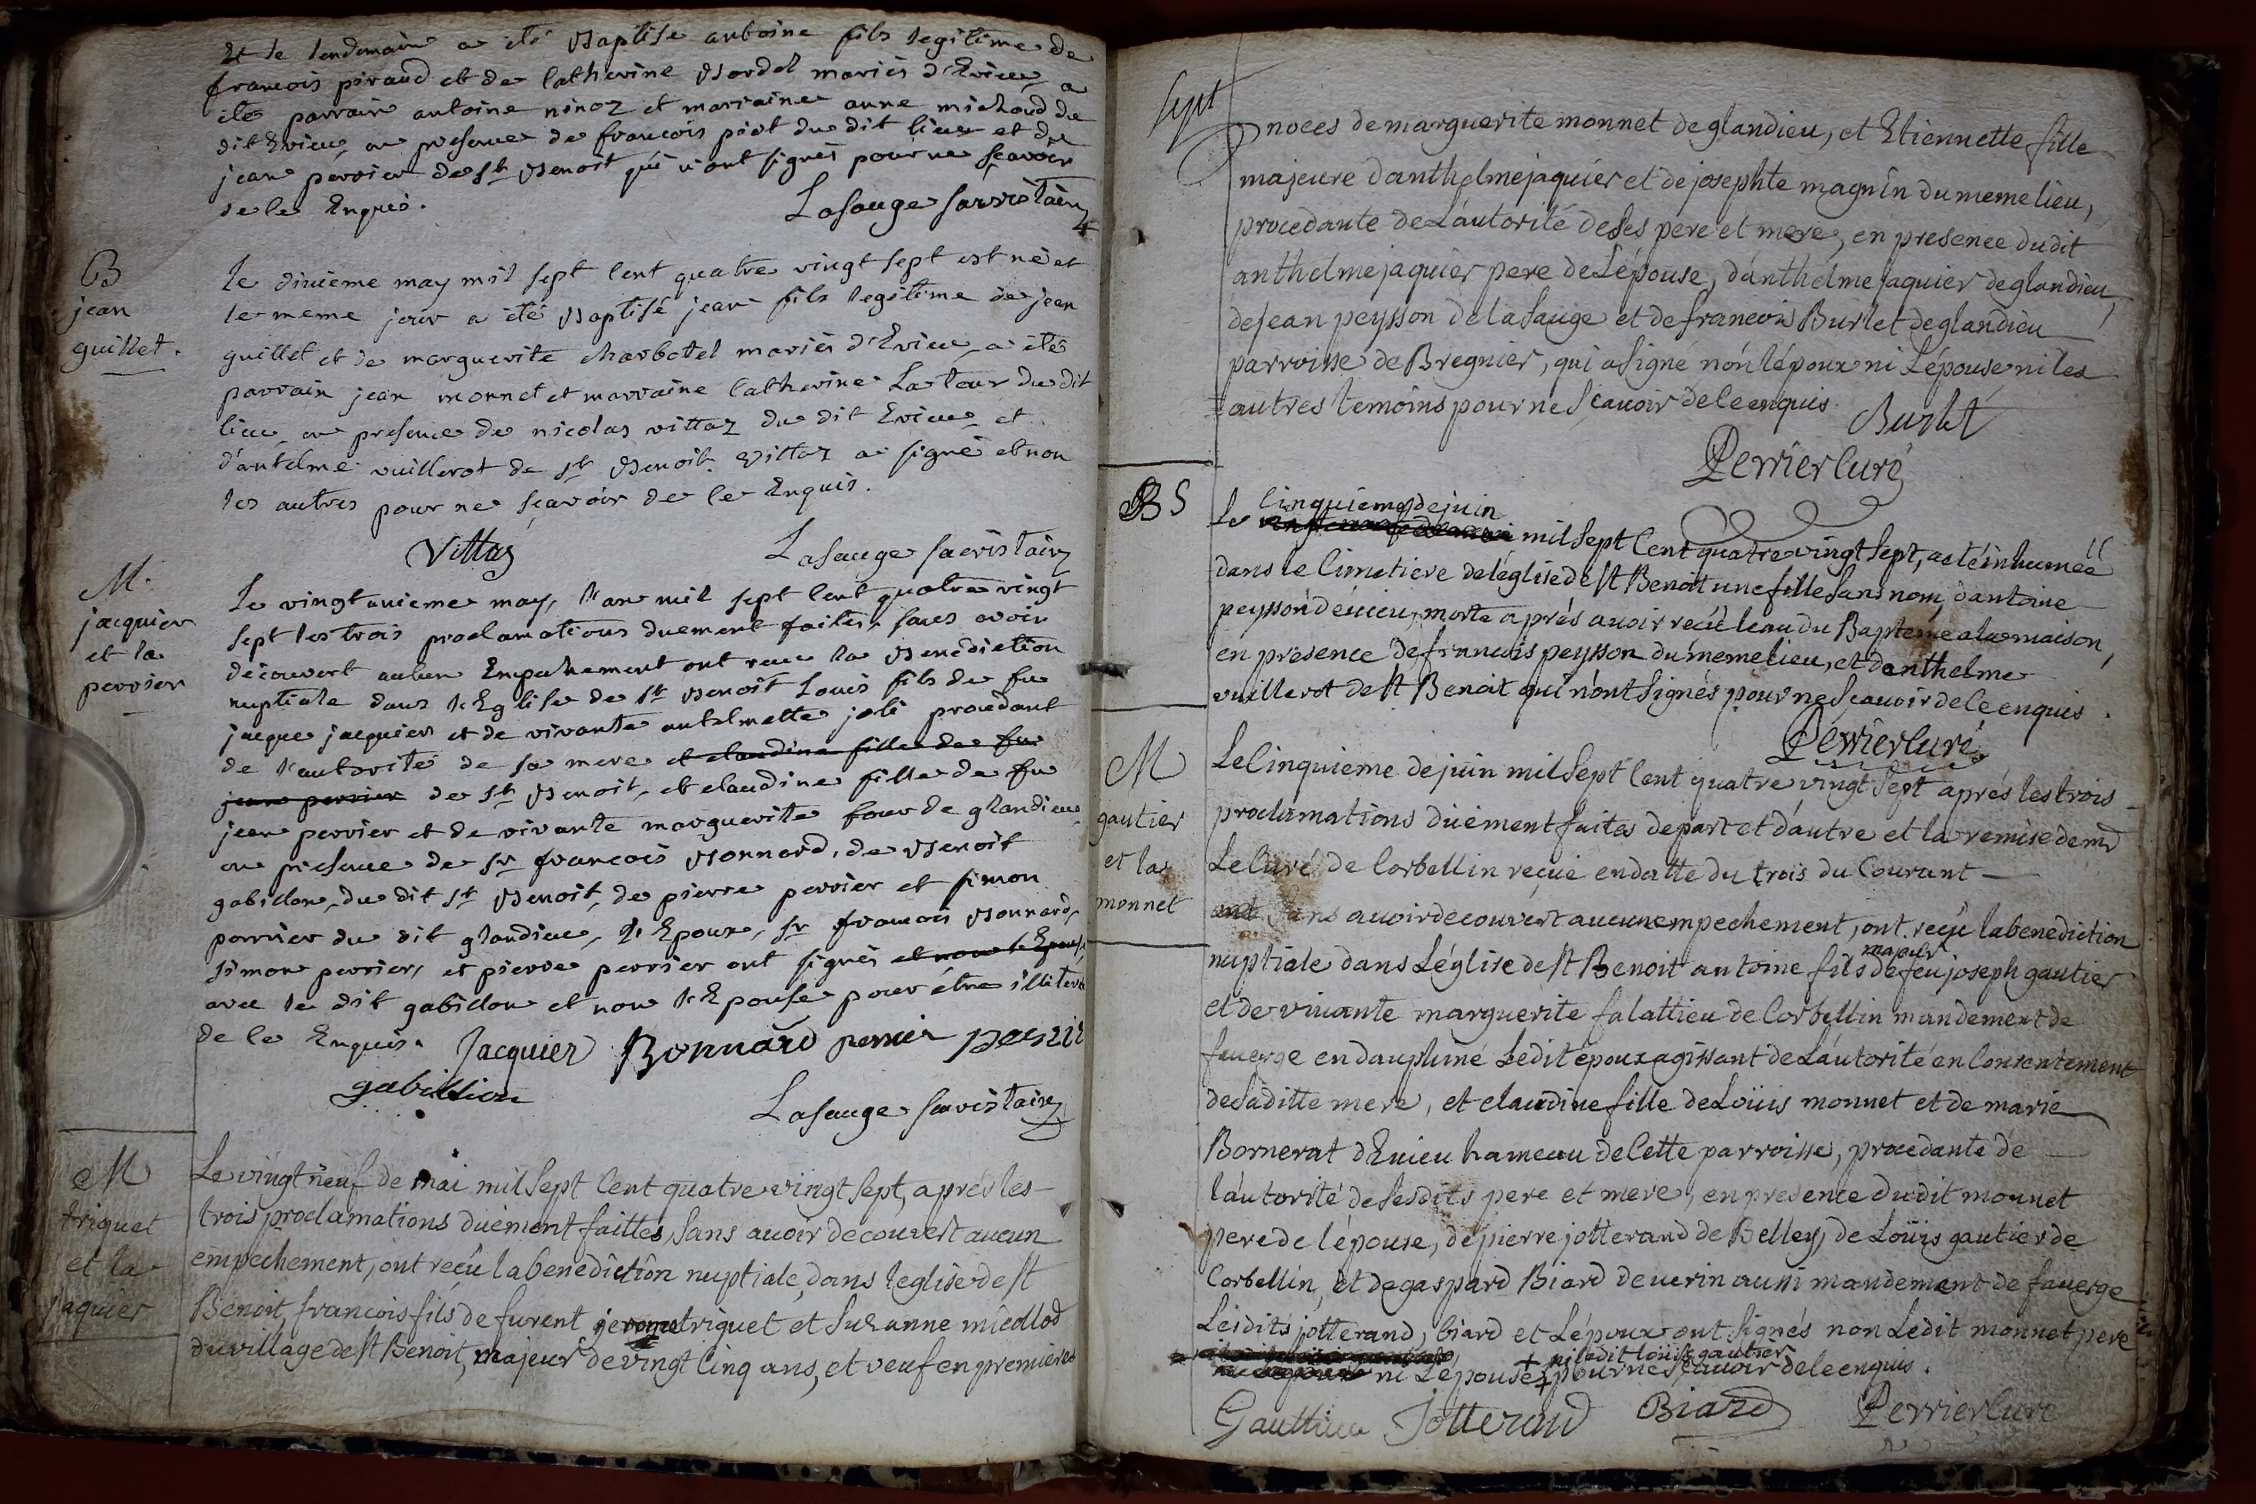 Et le lendemain a été Baptisé antoine fils legitime de
francois piraud et de Catherine Bordel mariés d'Evieu, a
été parrain antoine ninoz et marraine anne michoud du
dit Evieu, en presence de francois piot du dit lieu et de
jean perrier de st Benoit qui n'ont signés pour ne scavoir
de le Enquis.
Lasauge sacristain
B
jean
guillet.
le dixieme may mil sept Cent quatre vingt sept est né et
le meme jour a été Baptisé jean fils legitime de jean
guillet et de marguerite charbotel mariés d'Evieu, a été
parrain jean monnet et marraine Catherine La tour du dit
lieu, en presence de nicolas vittoz du dit Evieu, et
d'antelme vuillerot de st Benoit. vittoz a signé et non
les autres pour ne sçavoir de le Enquis.
Vittoz
Lasauge sacristain
M.
jacquier
et la
perrier
Le vingt unieme may, l'an mil sept Cent quatre vingt
sept les trois proclamations duement faites, sans avoir
découvert aucun Empechement ont recu la Benediction
nuptiale dans l'Eglise de st Benoit Louis fils de feu
jacque jacquier et de vivante antelmette joli procedant
de l'autorité de sa mere et claudine fille de feu
jean perrier de st Benoit, et claudine fille de feu
jean perrier et de vivante marguerite four de glandieu,
en presence de sr francois Bonnard, de Benoit
gabillon, du dit st Benoit, de pierre perrier et simon
perrier du dit glandieu, l'Epoux, sr francois Bonnard,
simon perrier, et pierre perrier ont signés et non l'Epouse
avec le dit gabillon et non l'Epouse pour être illiterée
de le Enquis.
Jacquier Bonnard perrier perrier
gabillion
Lasauge sacristain
M
triquet
et la
jaquier
Le vingt neuf de mai mil sept Cent quatre vingt sept, aprés les
trois proclamations duëment faittes, sans avoir decouvert aucun
empechement, ont reçû la benediction nuptiale, dans leglise de st
Benoit, francois fils de furent jerome triquet et Suzanne miedllod
du village de st Benoit, majeur de vingt Cinq ans, et veuf en premieres
sept
nocés de marguerite monnet de glandieu, et Etiennette fille
majeure d'anthelme jaquier et de josephte magnin du meme lieu,
procedante de L'autorité de ses pere et mere, en presence dudit
anthelme jaquier pere de L'épouse, d'anthelme jaquier de glandieu,
de jean peysson de la Sauge et de francois Burlet de glandieu
parroisse de Bregnier, qui a signé non l'époux ni L'épouse, ni les
autres temoins pour ne sçavoir de le enquis.
Burlet
Perrier Curé
BS
Cinquieme de juin
Le mil sept Cent quatre vingt sept, a été inhumeé
dans le Cimetiere de l'église de st Benoit une fille sans nom, d'antoine
peysson d'évieu, morte aprés avoir recüe leau du Baptême a la maison,
en presence de francois peysson du meme lieu, et d'anthelme
vuillerot de st Benoit qui n'ont signés pour ne sçavoir de le enquis.
Perrier Curé
M
gautier
et la
monnet
Le Cinquieme de juin mil sept Cent quatre vingt sept aprés les trois
proclamations duëment faites de part et d'autre et la remise de mr
Le Curé de Corbellin reçue en datte du trois du Courant
ont sans avoir decouvert aucun empechement, ont reçu la benediction
majeur
nuptiale dans L'église de st Benoit antoine fils de feu joseph gautier
et de vivante marguerite falattieu de Corbellin mandement de
faverge en dauphiné Ledit epoux agissant de L'autorité en Consentement
de sa ditte mere, et claudine fille de Loüis monnet et de marie
Bornerat d'Evieu hameau de Cette parroisse, procedante de
l'autorité de sesdits pere et mere, en presence dudit monnet
pere de l'épouse, de pierre jotterand de Belley, de Loüis gautier de
Corbellin, et de gaspard Biard de verin aussi mandement de faverge
Lesdits jotterand, biard et L'époux ont signés non Ledit monnet pere
ni ledit loüis gautier
ni L'épouse pour ne sçavoir de le enquis.
Gauttier Jotterand Biard Perrier Curé